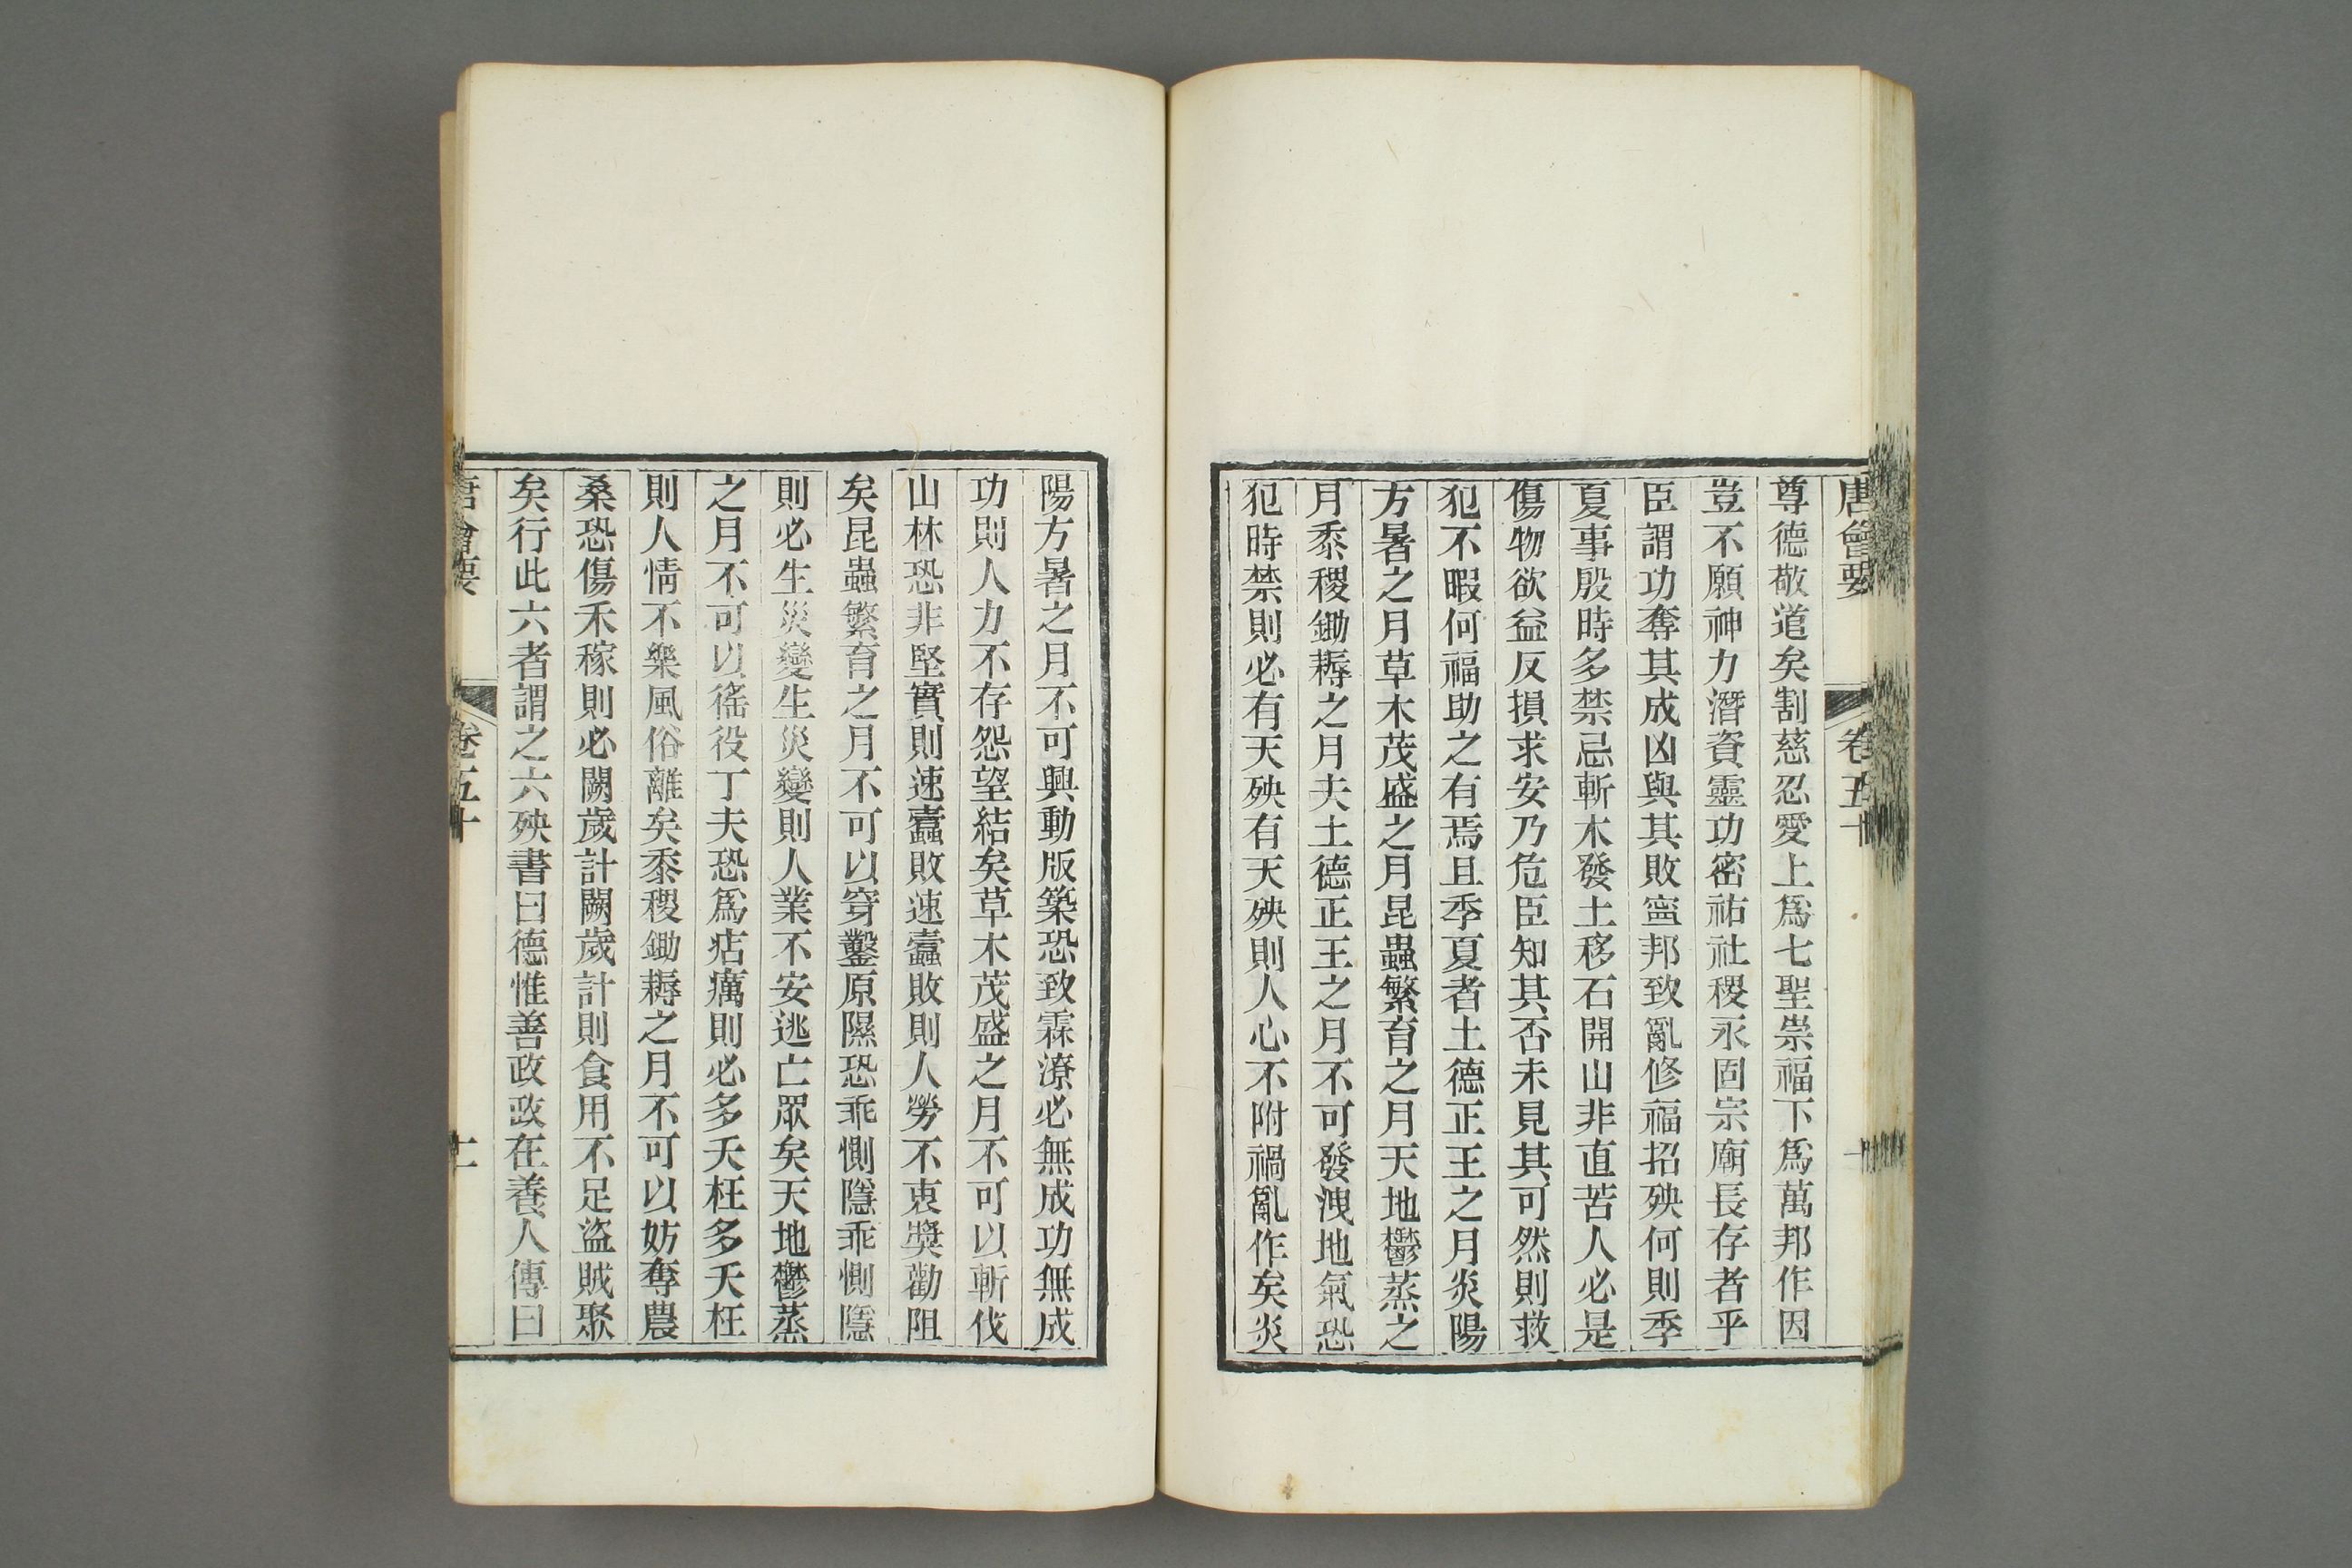 唐會要 卷五十
尊德敬道矣割慈忍愛上爲七聖祟福下爲萬邦作因
豈不願神力潛資靈功密祐社稷永固宗廟長存者乎
臣謂功奪其成凶與其敗寍邦致亂修福招殃何則季
夏事殷時多禁忌斬木發土移石開山非直苦人必是
傷物欲益反損求安乃危臣知其否未見其可然則救
犯不暇何福助之有焉且季夏者土德正王之月炎陽
方暑之月草木茂盛之月昆蟲繁育之月天地鬱蒸之
月黍稷鋤耨之月夫土德正王之月不可發洩地氣恐
犯時禁則必有天殃有天殃則人心不附禍亂作矣炎
陽方暑之月不可興動版築恐致霖潦必無成功無成
功則人力不存怨望結矣草木茂盛之月不可以斬伐
山林恐非堅實則速蠹敗速蠹敗則人勞不衷獎勸阻
矣昆蟲繁育之月不可以穿鑿原隰恐乖惻隱乖惻隱
則必生災變生災變則人業不安逃亡眾矣天地鬱蒸
之月不可以徭役丁夫恐爲痁癘則必多夭枉多夭枉
則人情不樂風俗離矣黍稷鋤耨之月不可以妨奪農
桑恐傷禾稼則必闕歲計闕歲計則食用不足盜賊聚
矣行此六者謂之六殃書曰德惟善政政在養人傳曰
唐會要 卷五十